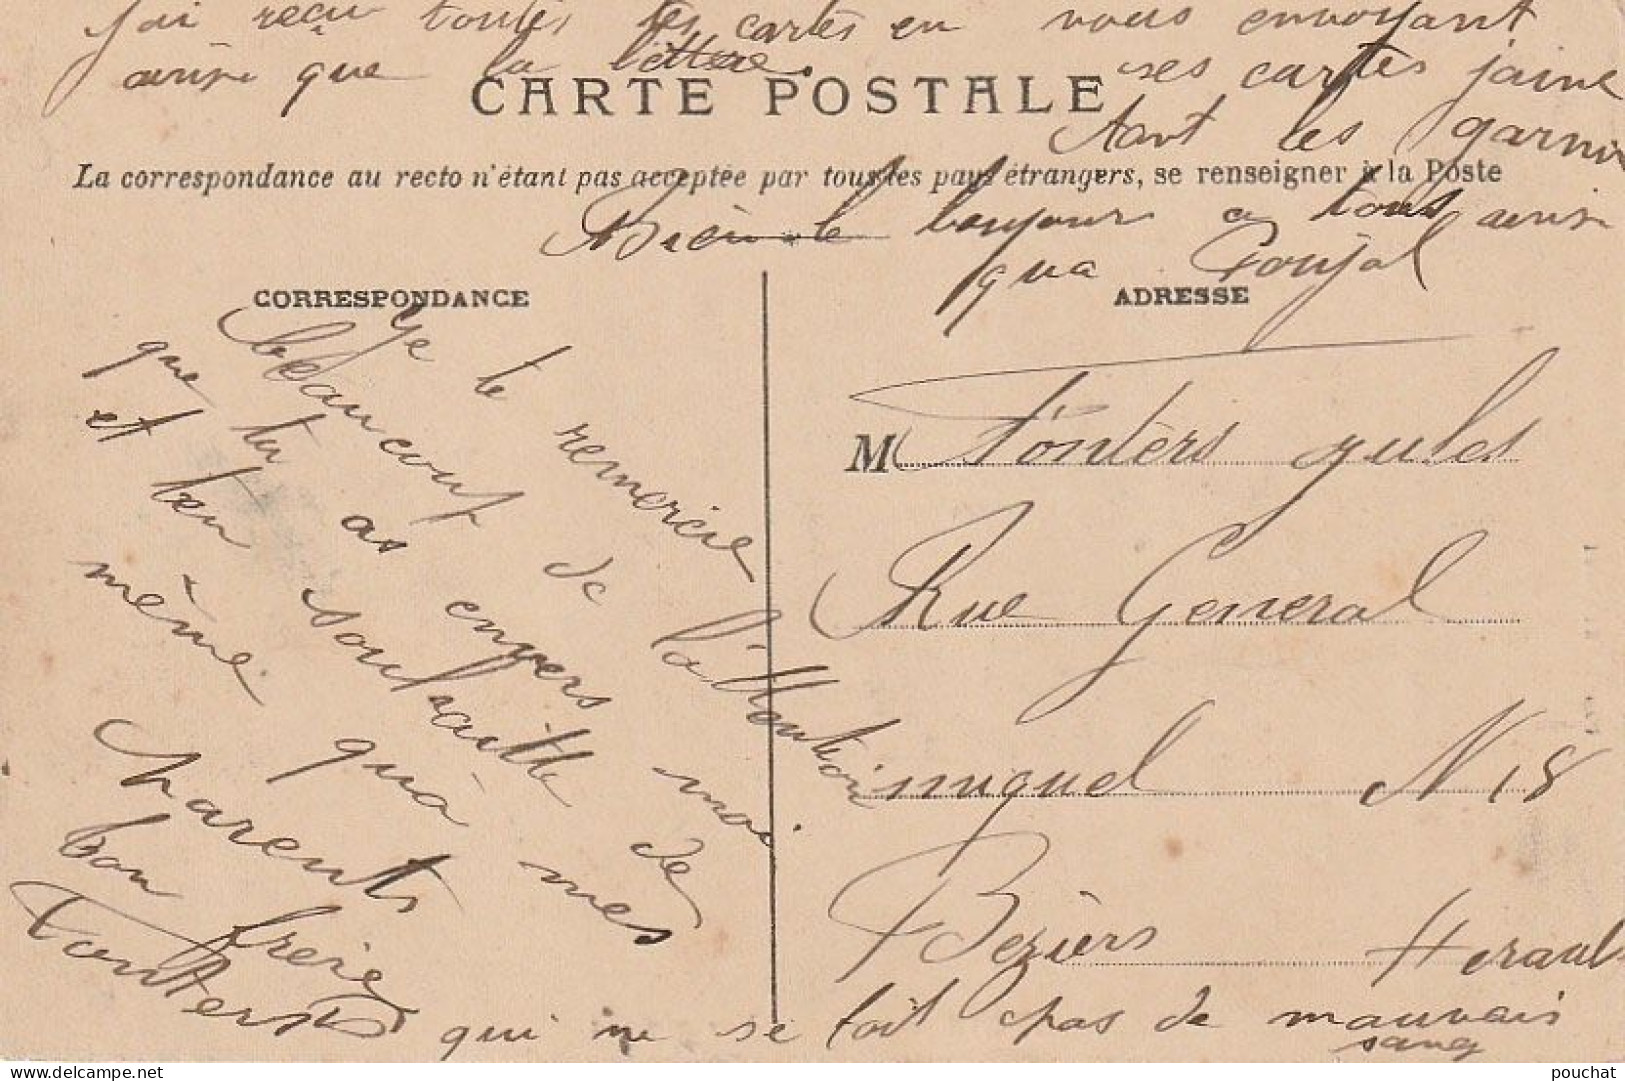 j'ai reçu toutes tes cartes en vous envoyant
ainsi que la lettre. ses cartes jaime
CARTE POSTALE
tant les garnir
La correspondance au recto n'étant pas acceptée par tous les pays étrangers, se renseigner à la Poste
Bien le bonjour a tous ainsi
qua Poujol
CORRESPONDANCE
ADRESSE
Je te remercie
beaucout de l'attention
que tu as envers moi
et ten souhaitte de
même qu'à mes
parents
bon freire
Fonters
qui ne se fait pas de mauvais
sang
M Fonters Jules
Rue General
miguel N 18
Béziers Herault
delcampe.net
pouchat